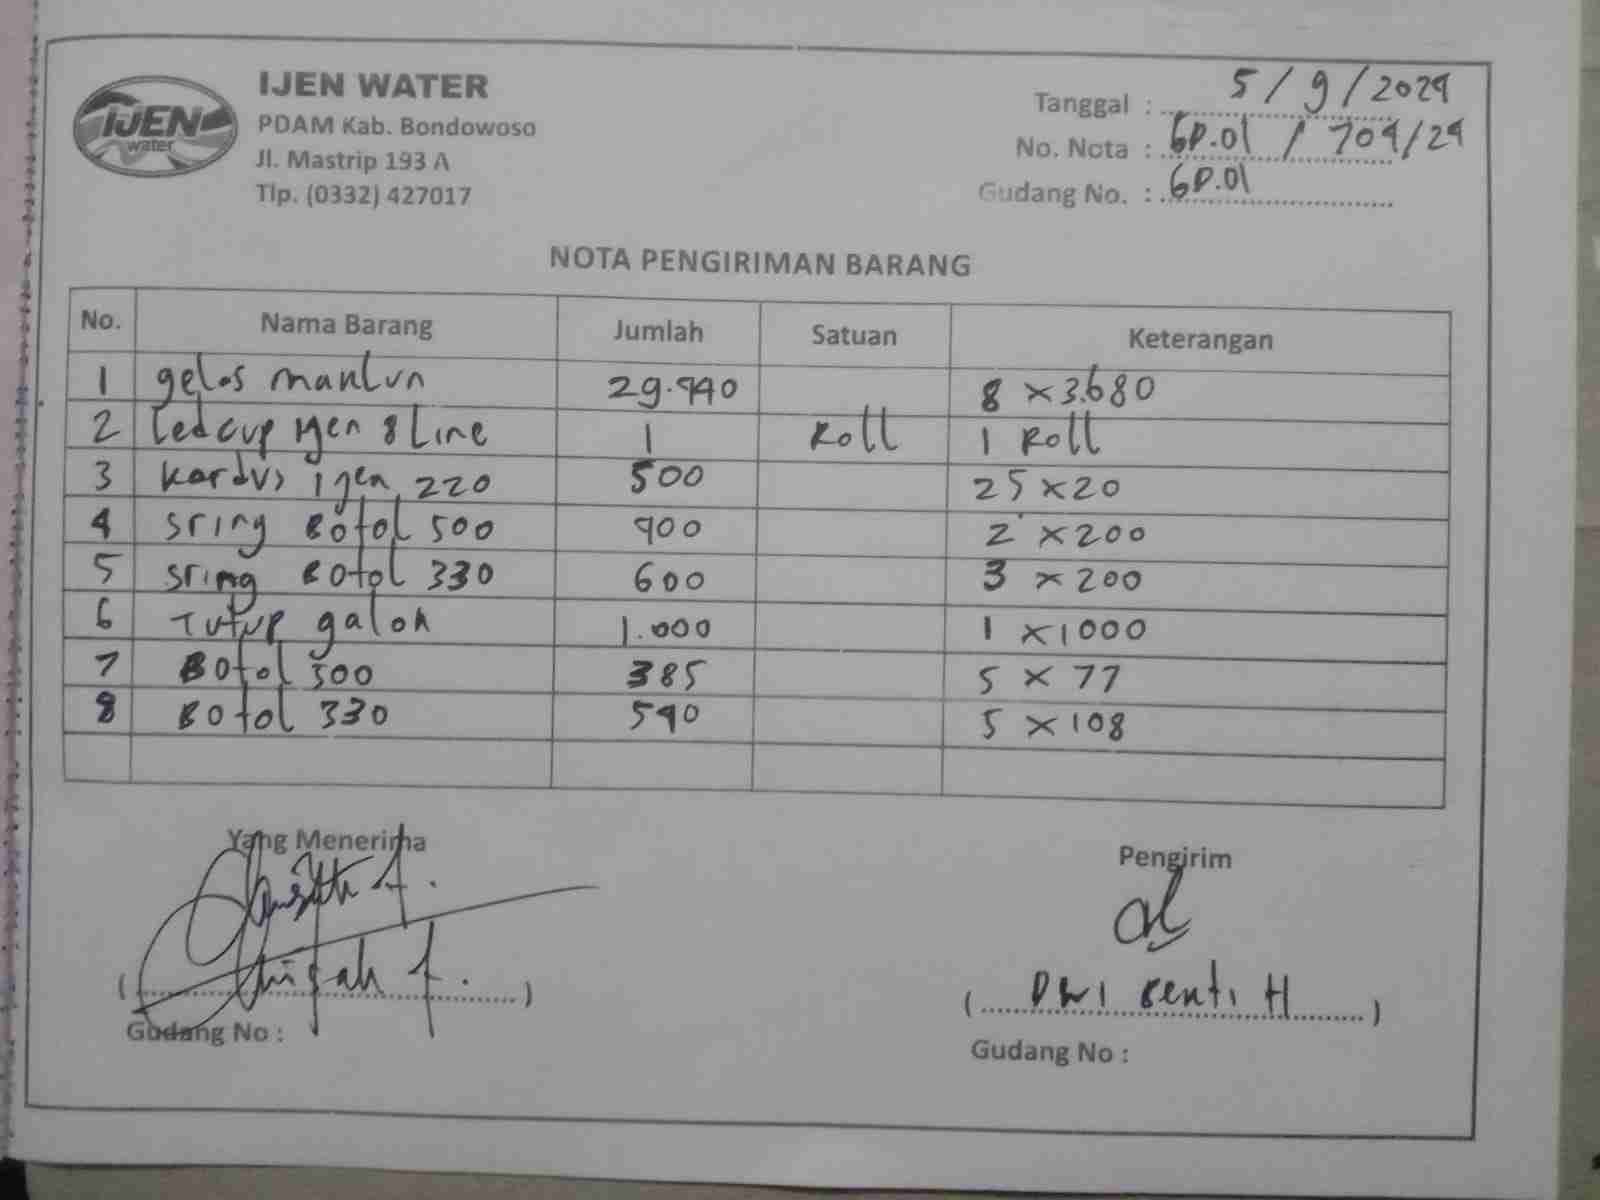 IJEN WATER
PDAM Kab. Bondowoso
Jl. Mastrip 193 A
Tlp. (0332) 427017
IJEN
water
Tanggal : 5 / 9 / 2024
No. Nota : GD.01 / 704/24
Gudang No. : GD.01
NOTA PENGIRIMAN BARANG
No. Nama Barang Jumlah Satuan Keterangan
1 gelas manlun 29.440 8 x 3.680
2 Ledcup Ijen 8 Line 1 Roll 1 Roll
3 kardus ijen 220 500 25 x 20
4 sring Botol 500 400 2 x 200
5 sring Botol 330 600 3 x 200
6 Tutup galon 1.000 1 x 1000
7 Botol 500 385 5 x 77
8 Botol 330 540 5 x 108
Yang Menerima
Pengirim
( Dwi Renti H )
Gudang No :
Gudang No :